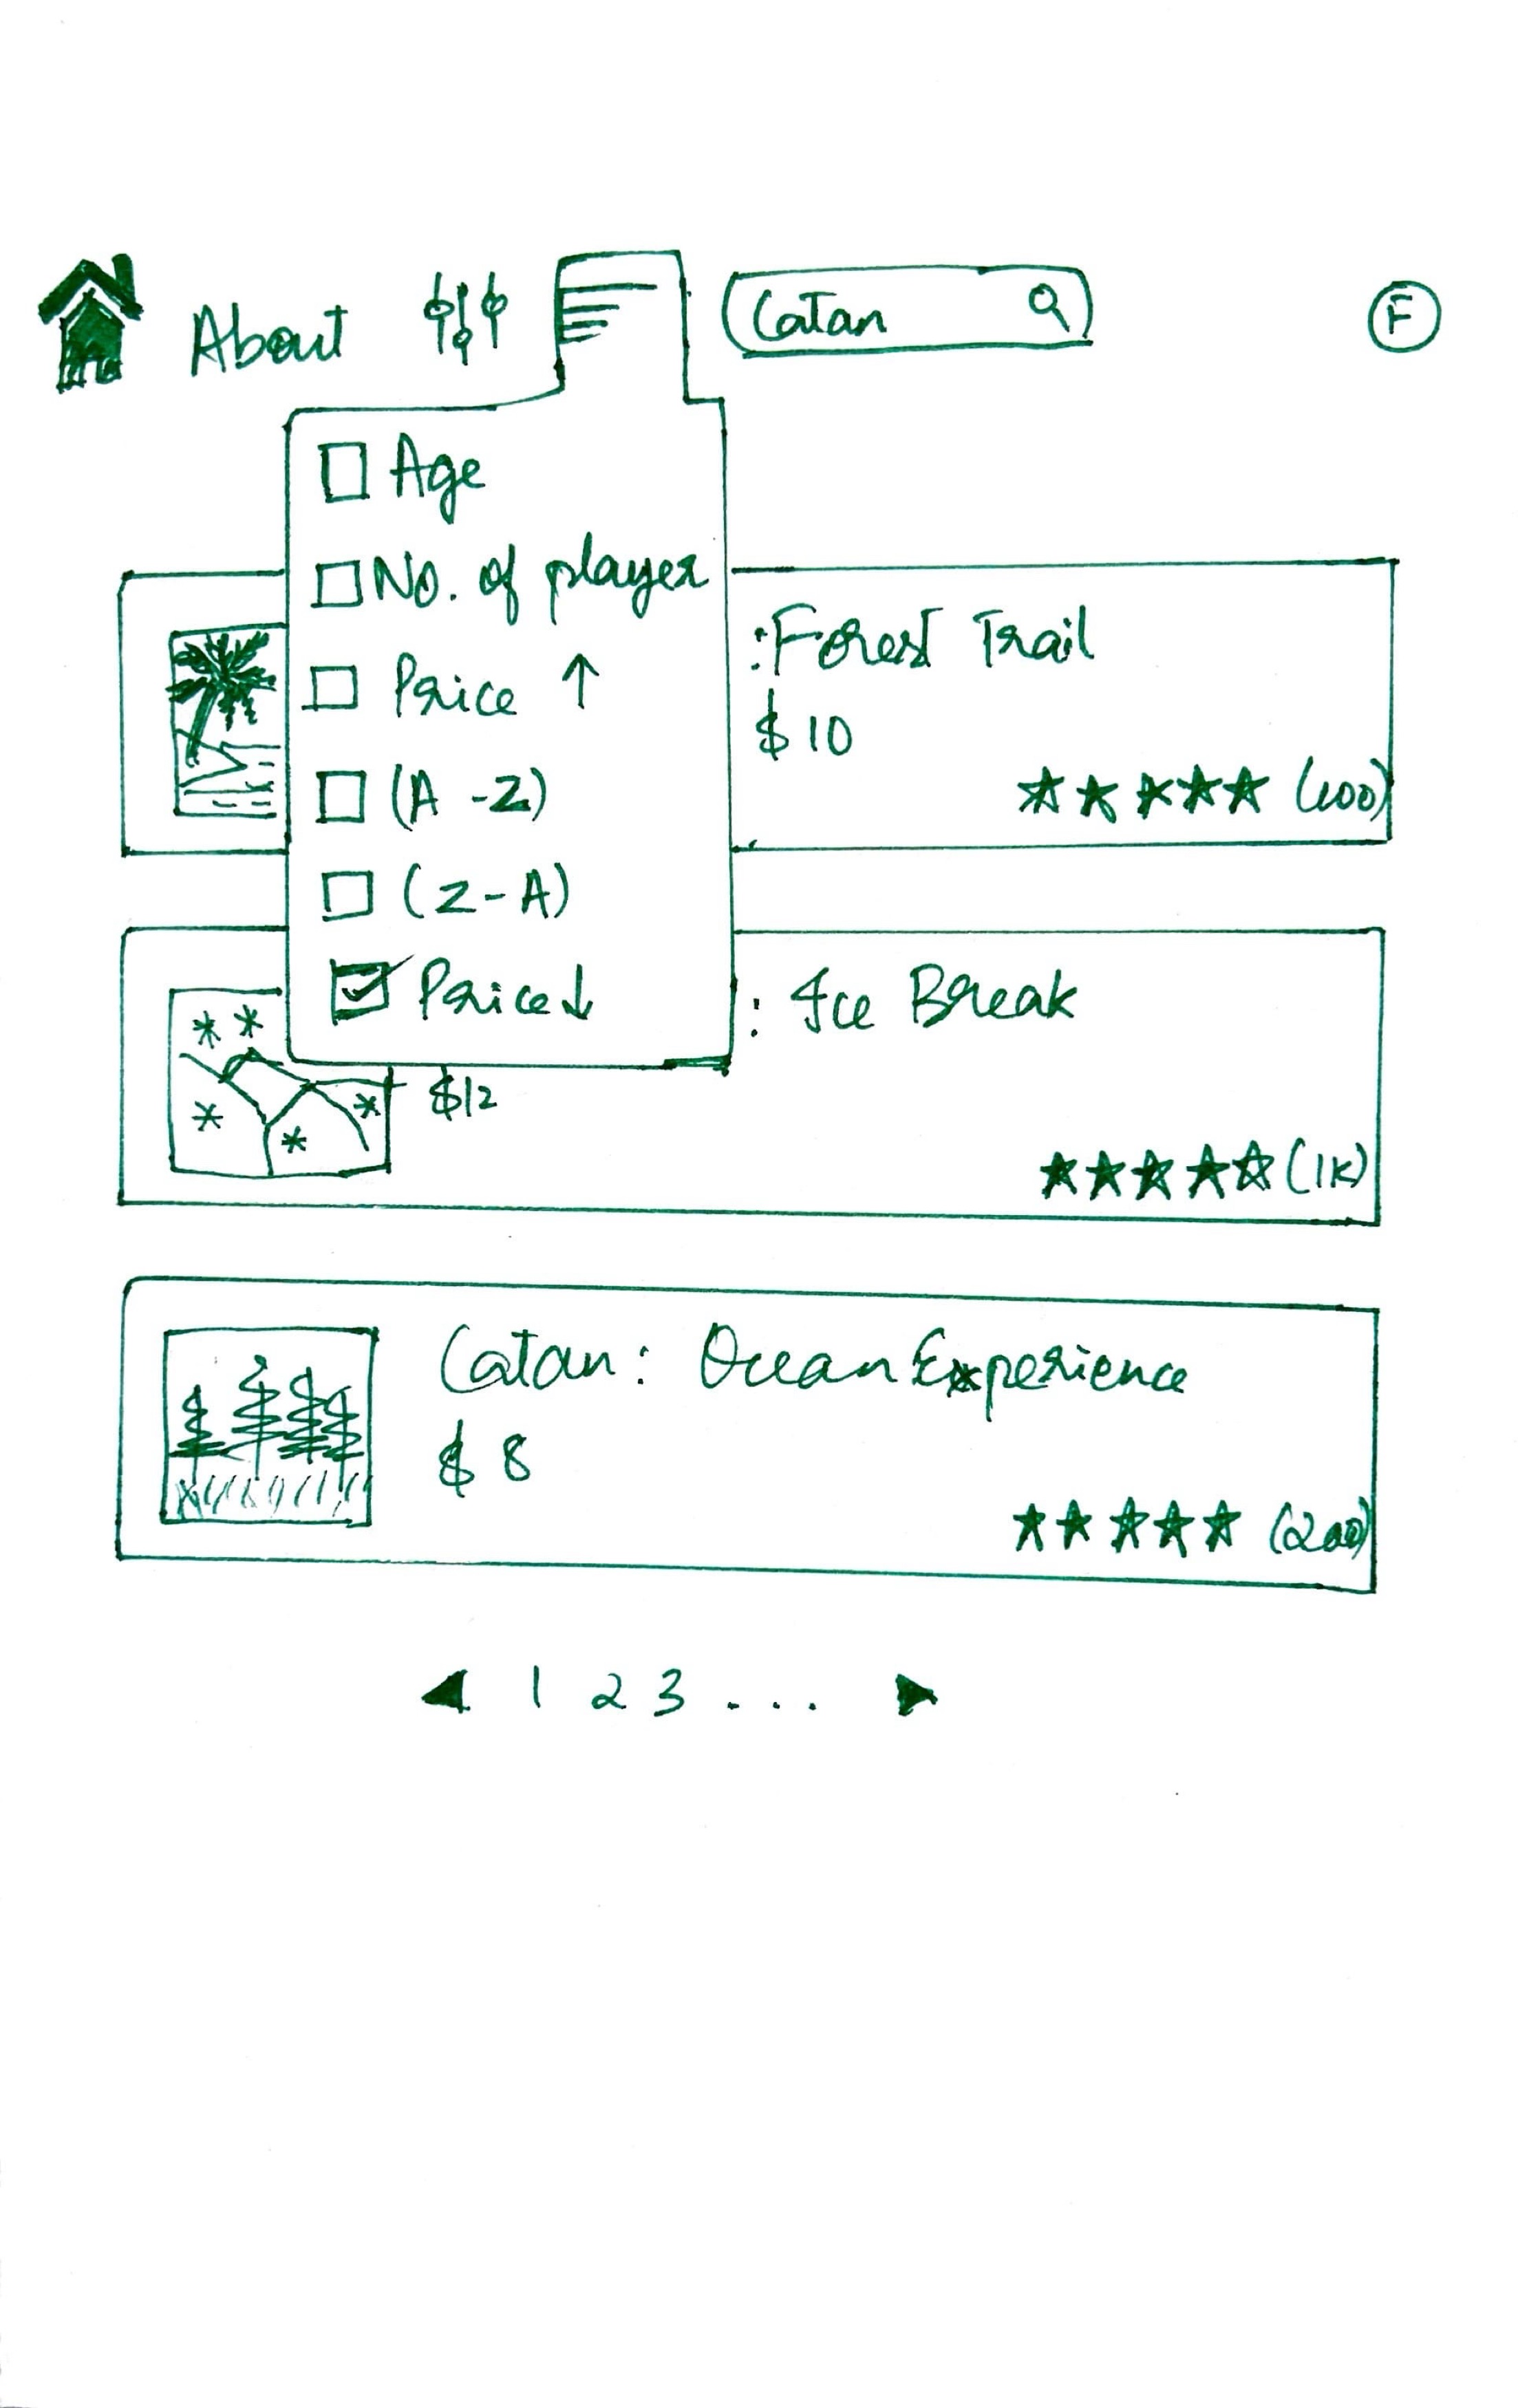 About
Catan
F
Age
No. of player
Price ↑
(A - Z)
(Z - A)
Price ↓
: Forest Trail
$ 10
(100)
: Ice Break
$12
(1K)
Catan: Ocean Experience
$ 8
(200)
1 2 3 . . .